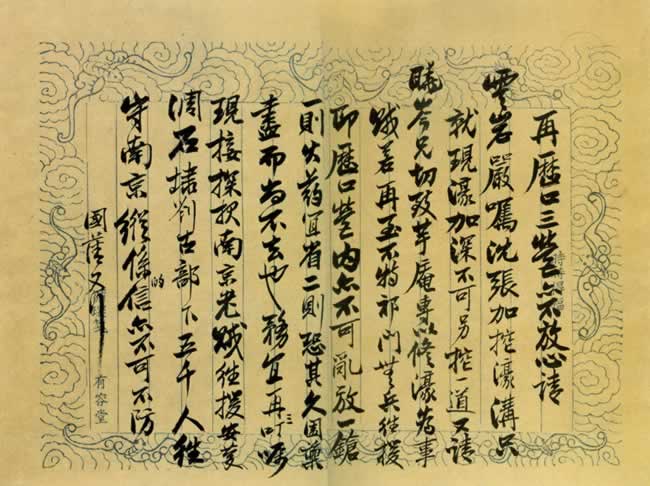 再歷口三營亦不放心請
雲岩嚴囑沈張加挖濠溝只
就現濠加深不可另挖一道又請
岑兄切致芋庵專以修濠為事
賊若再至不特祁門無兵往援
即歷口營內亦不可亂放一鎗
一則火藥宜省二則恐其久困藥
盡而尚不去也務宜再三叮嚀
現接探報南京老賊往援安慶
石埭劉古部下五千人往
守南京縱係的信亦不可不防
國藩又
有容堂